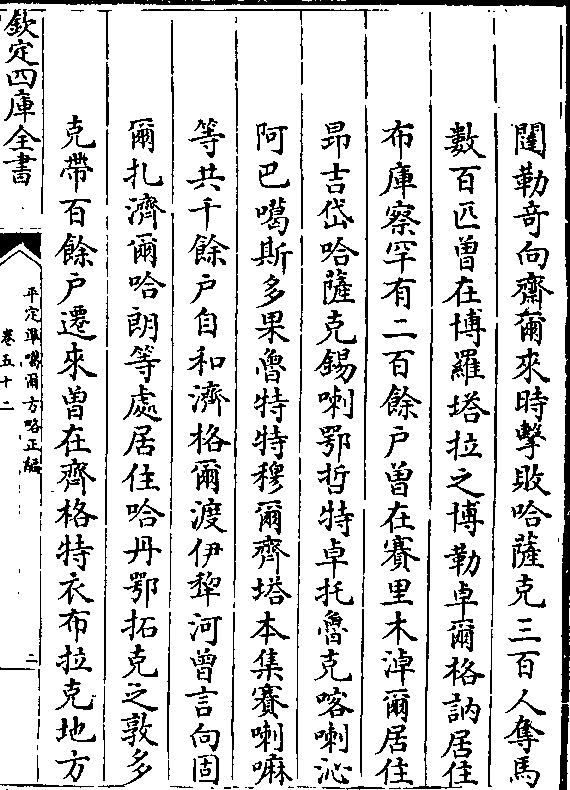 闥勒奇向齋爾來時擊敗哈薩克三百人奪馬
數百匹曽在博羅塔拉之博勒卓爾格訥居住
布庫察罕有二百餘户曽在賽里木淖爾居住
昻吉岱哈薩克錫喇鄂哲特卓托魯克喀喇沁
阿巴噶斯多果魯特特穆爾齊塔本集賽喇嘛
等共千餘户自和濟格爾渡伊犂河曽言向固
爾扎濟爾哈朗等處居住哈丹鄂拓克之敦多
克帶百餘户遷來曽在齊格特衣布拉克地方
欽定四庫全書
平定準噶爾方略正編
卷五十二
二